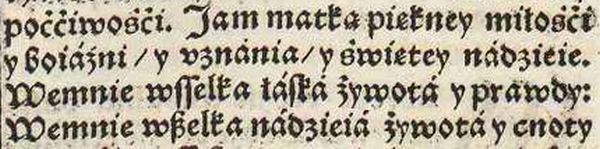 poććiwośći. Jam matka piękney miłośći
y boiáźni / y vznánia / y świętey nádzieie.
Wemnie wſſelka łáſká żywotá y prawdy:
Wemnie wßelka nádzieiá żywotá y cnoty